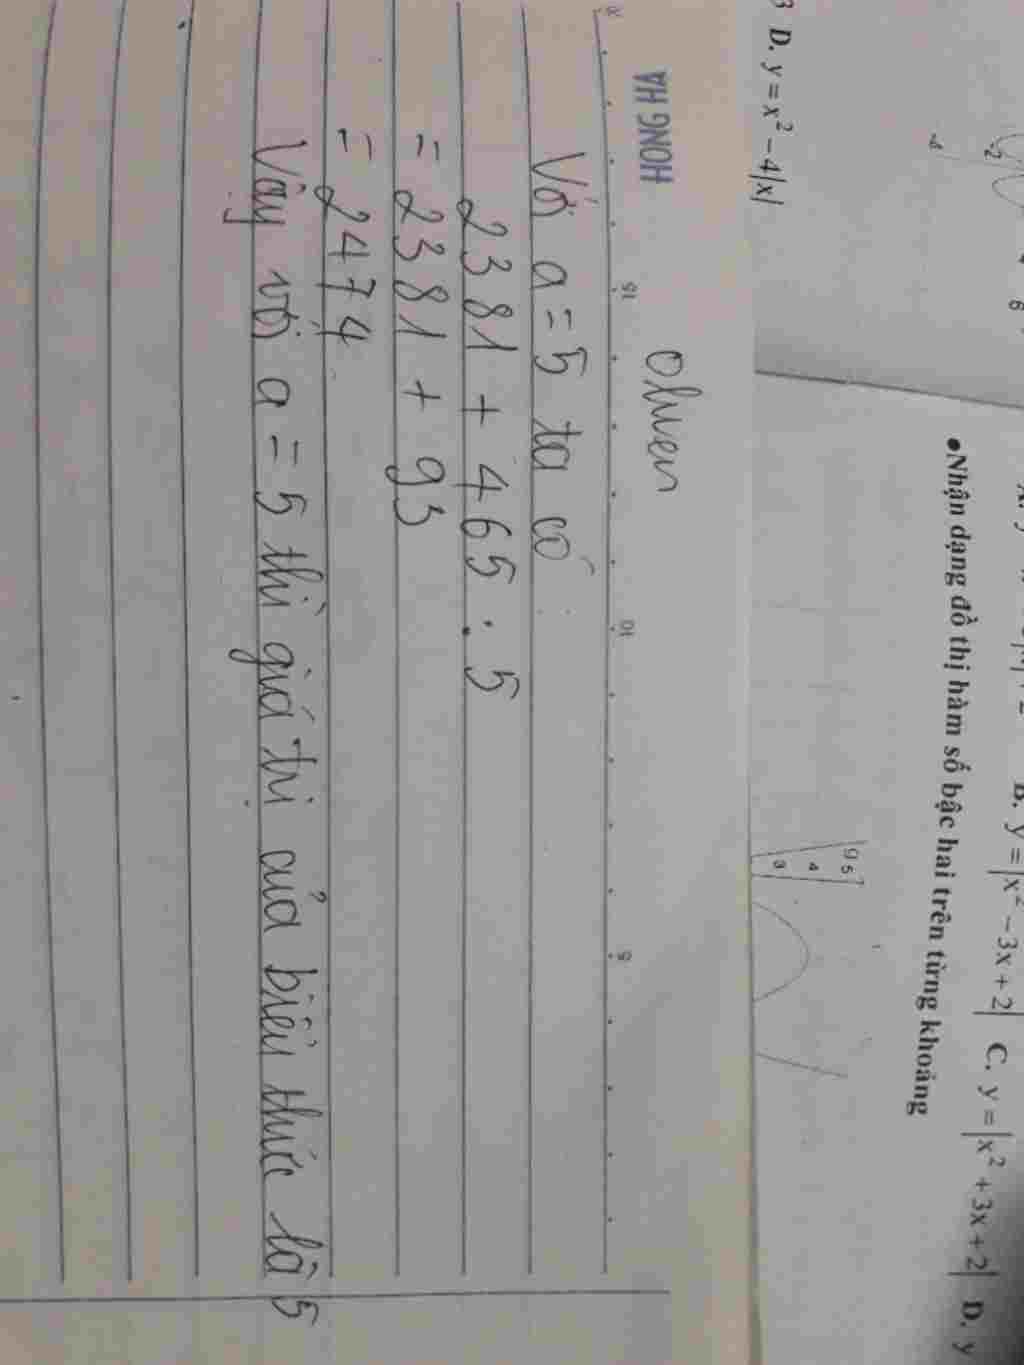 3 D. y = x² − 4|x|
-2
-4
6
B. y = |x² − 3x + 2| C. y = |x² + 3x + 2| D. y
•Nhận dạng đồ thị hàm số bậc hai trên từng khoảng
5
4
3
HONG HA
15
10
5
olwen
Với a = 5 ta có
2381 + 465 : 5
= 2381 + 93
= 2474
Vậy với a = 5 thì giá trị của biểu thức là 5